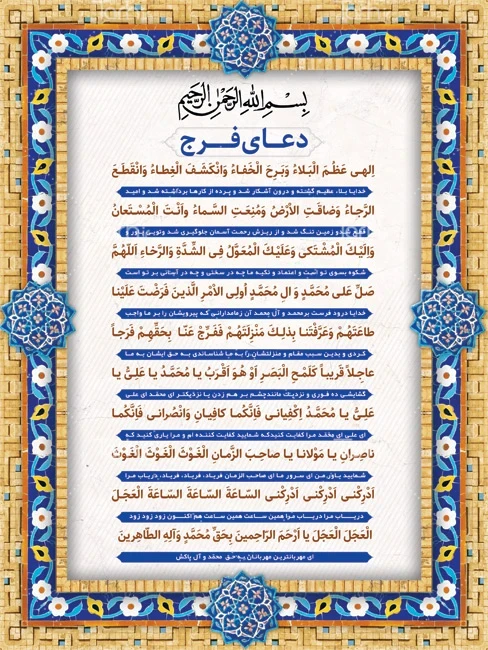 بِسْمِ اللهِ الرَّحْمٰنِ الرَّحِیْمِ
دعای فرج
اِلهى عَظُمَ الْبَلاءُ وَبَرِحَ الْخَفاءُ وَانْکَشَفَ الْغِطاءُ وَانْقَطَعَ
خدایا بلاء عظیم گشته و درون آشکار شد و پرده از کارها برداشته شد و امید
الرَّجاءُ وَضاقَتِ الاَرْضُ وَمُنِعَتِ السَّماءُ وَاَنْتَ الْمُسْتَعانُ
قطع شد و زمین تنگ شد و از ریزش رحمت آسمان جلوگیری شد وتویی یاور و
وَاِلَیْکَ الْمُشْتَکى وَعَلَیْکَ الْمُعَوَّلُ فِى الشِّدَّةِ وَالرَّخاءِ اَللّهُمَّ
شکوه بسوی تو است و اعتماد و تکیه ما چه در سختی و چه در آسانی بر تو است
صَلِّ عَلى مُحَمَّدٍ وَ الِ مُحَمَّدٍ اُولِى الاَمْرِ الَّذینَ فَرَضْتَ عَلَیْنا
خدایا درود فرست بر محمد و آل محمد آن زمامدارانی که پیرویشان را بر ما واجب
طاعَتَهُمْ وَعَرَّفْتَنا بِذلِکَ مَنْزِلَتَهُمْ فَفَرِّجْ عَنّا بِحَقِّهِمْ فَرَجاً
کردی و بدین سبب مقام و منزلتشان را به ما شناساندی به حق ایشان به ما
عاجِلاً قَریباً کَلَمْحِ الْبَصَرِ اَوْ هُوَ اَقْرَبُ یا مُحَمَّدُ یا عَلِىُّ یا
گشایشی ده فوری و نزدیک مانند چشم بر هم زدن یا نزدیکتر ای محمد ای علی
عَلِىُّ یا مُحَمَّدُ اِکْفِیانى فَاِنَّکُما کافِیانِ وَانْصُرانى فَاِنَّکُما
ای علی ای محمد مرا کفایت کنید که شمایید کفایت کننده ام و مرا یاری کنید که
ناصِرانِ یا مَوْلانا یا صاحِبَ الزَّمانِ الْغَوْثَ الْغَوْثَ الْغَوْثَ
شمایید یاور من ای سرور ما ای صاحب الزمان فریاد، فریاد، فریاد، دریاب مرا
اَدْرِکْنى اَدْرِکْنى اَدْرِکْنى السّاعَةَ السّاعَةَ السّاعَةَ الْعَجَلَ
دریاب مرا دریاب مرا همین ساعت همین ساعت هم اکنون زود زود زود
الْعَجَلَ الْعَجَلَ یا اَرْحَمَ الرّاحِمینَ بِحَقِّ مُحَمَّدٍ وَآلِهِ الطّاهِرینَ
ای مهربانترین مهربانان به حق محمد و آل پاکش